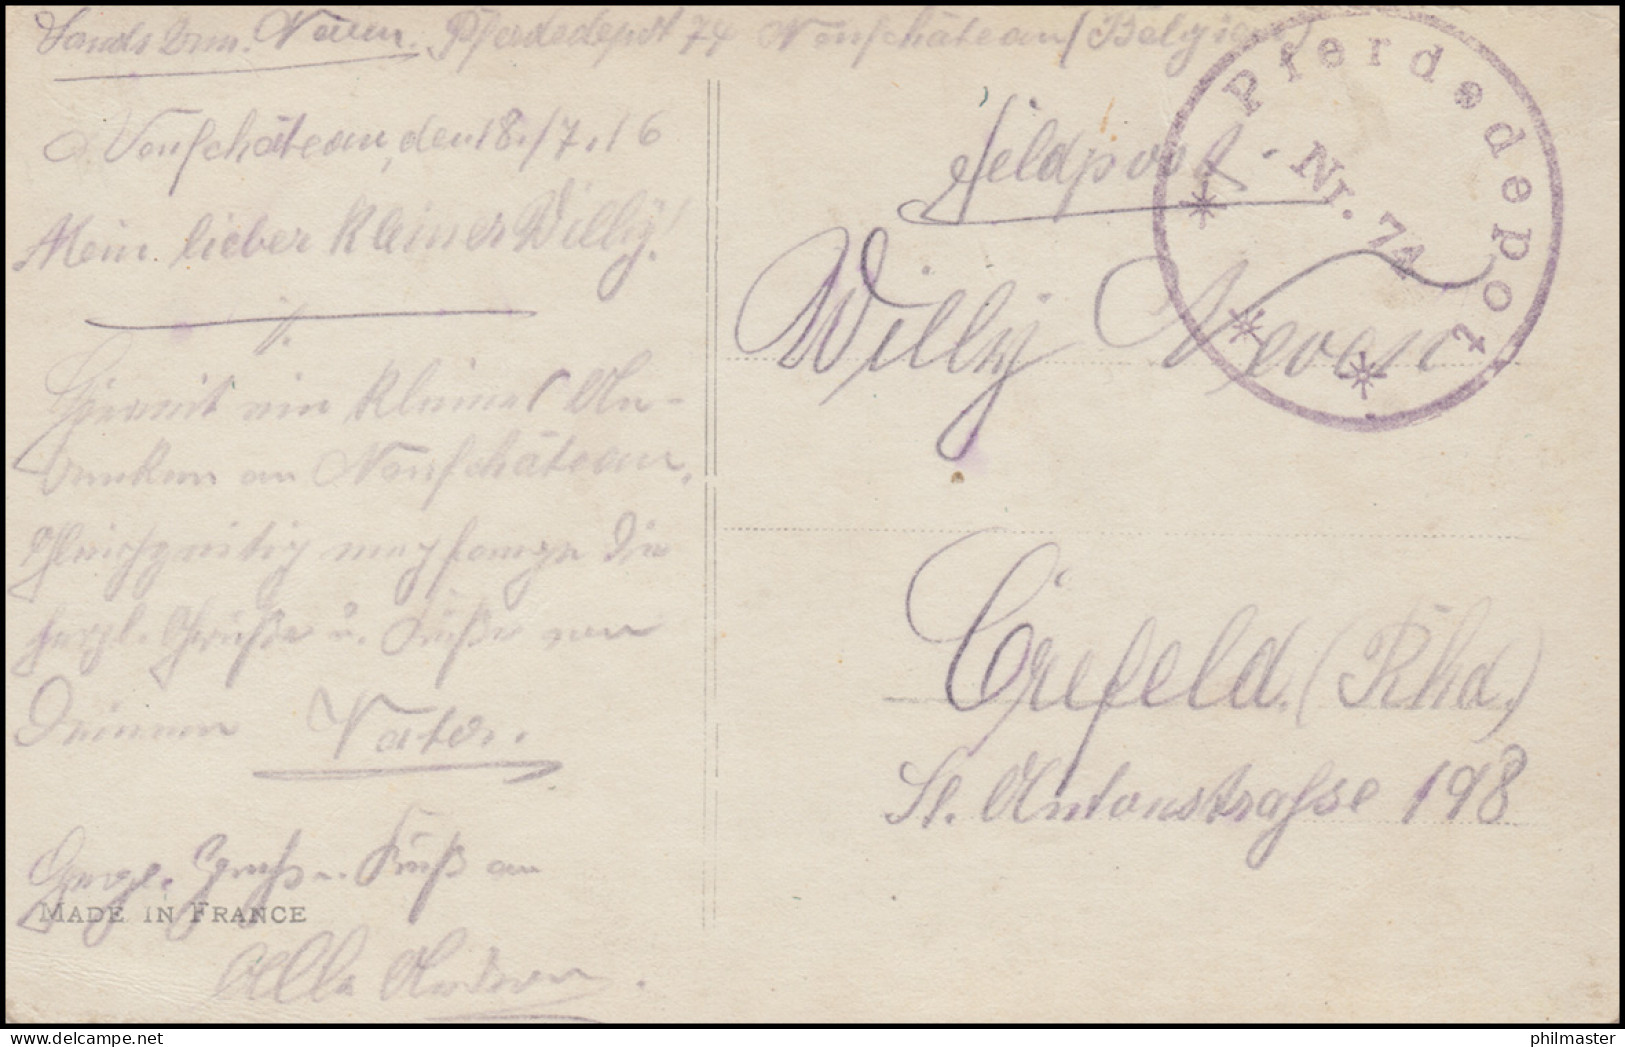 Landstrm. Neven. Pferdedepot 74 Neufchâteau (Belgien)
Neufchâteau, den 18./7.16
Mein lieber kleiner Willy!
Hiermit ein kleines An-
denken an Neufchâteau.
Gleichzeitig empfange die
herzl. Grüße u. Küße von
Deinem Vater.
Herzl. Gruß u. Kuß an
Alle Anderen.
MADE IN FRANCE
Feldpost.
Pferdedepot
Nr. 74
Willy Neven
Crefeld. (Rhd.)
St. Antonstrasse 198
philmaster